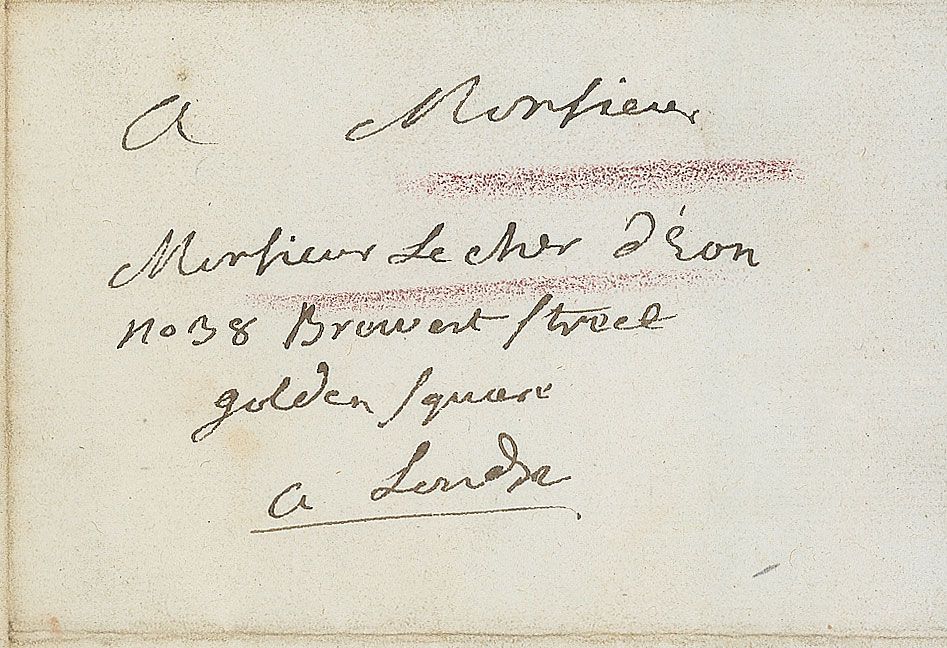 A Monsieur
Monsieur Le cher d'Éon
no 38 Brewert Street
golden Square
a Londre